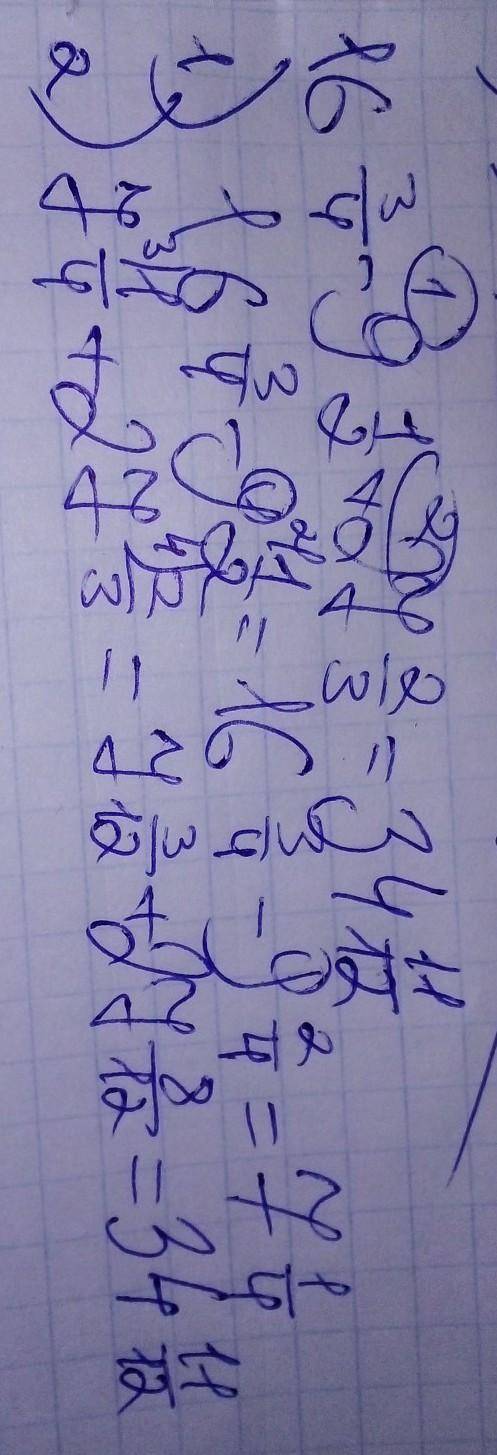 16 3/4 - 9 1/2 + 27 2/3 = 34 11/12
1 2
1) 16 3/4 - 9 1/2 = 16 3/4 - 9 2/4 = 7 1/4
2) 7 1/4 + 27 2/3 = 7 3/12 + 27 8/12 = 34 11/12